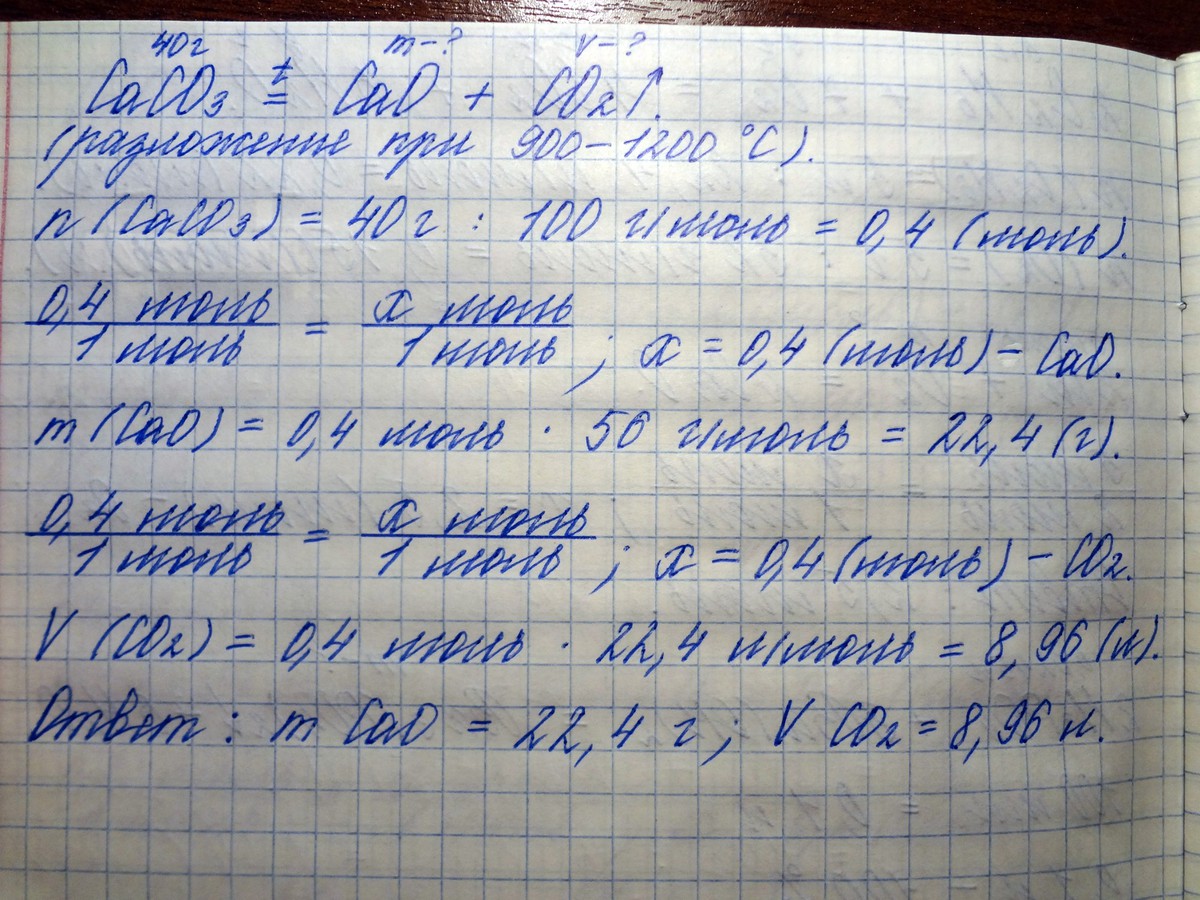 40г m-? V-?
CaCO3 t= CaO + CO2↑.
(разложение при 900-1200 °C).
n (CaCO3) = 40г : 100 г/моль = 0,4 (моль).
0,4 моль / 1 моль = x моль / 1 моль ; x = 0,4 (моль) - CaO.
m (CaO) = 0,4 моль · 56 г/моль = 22,4 (г).
0,4 моль / 1 моль = x моль / 1 моль ; x = 0,4 (моль) - CO2.
V (CO2) = 0,4 моль · 22,4 л/моль = 8,96 (л).
Ответ : m CaO = 22,4 г ; V CO2 = 8,96 л.